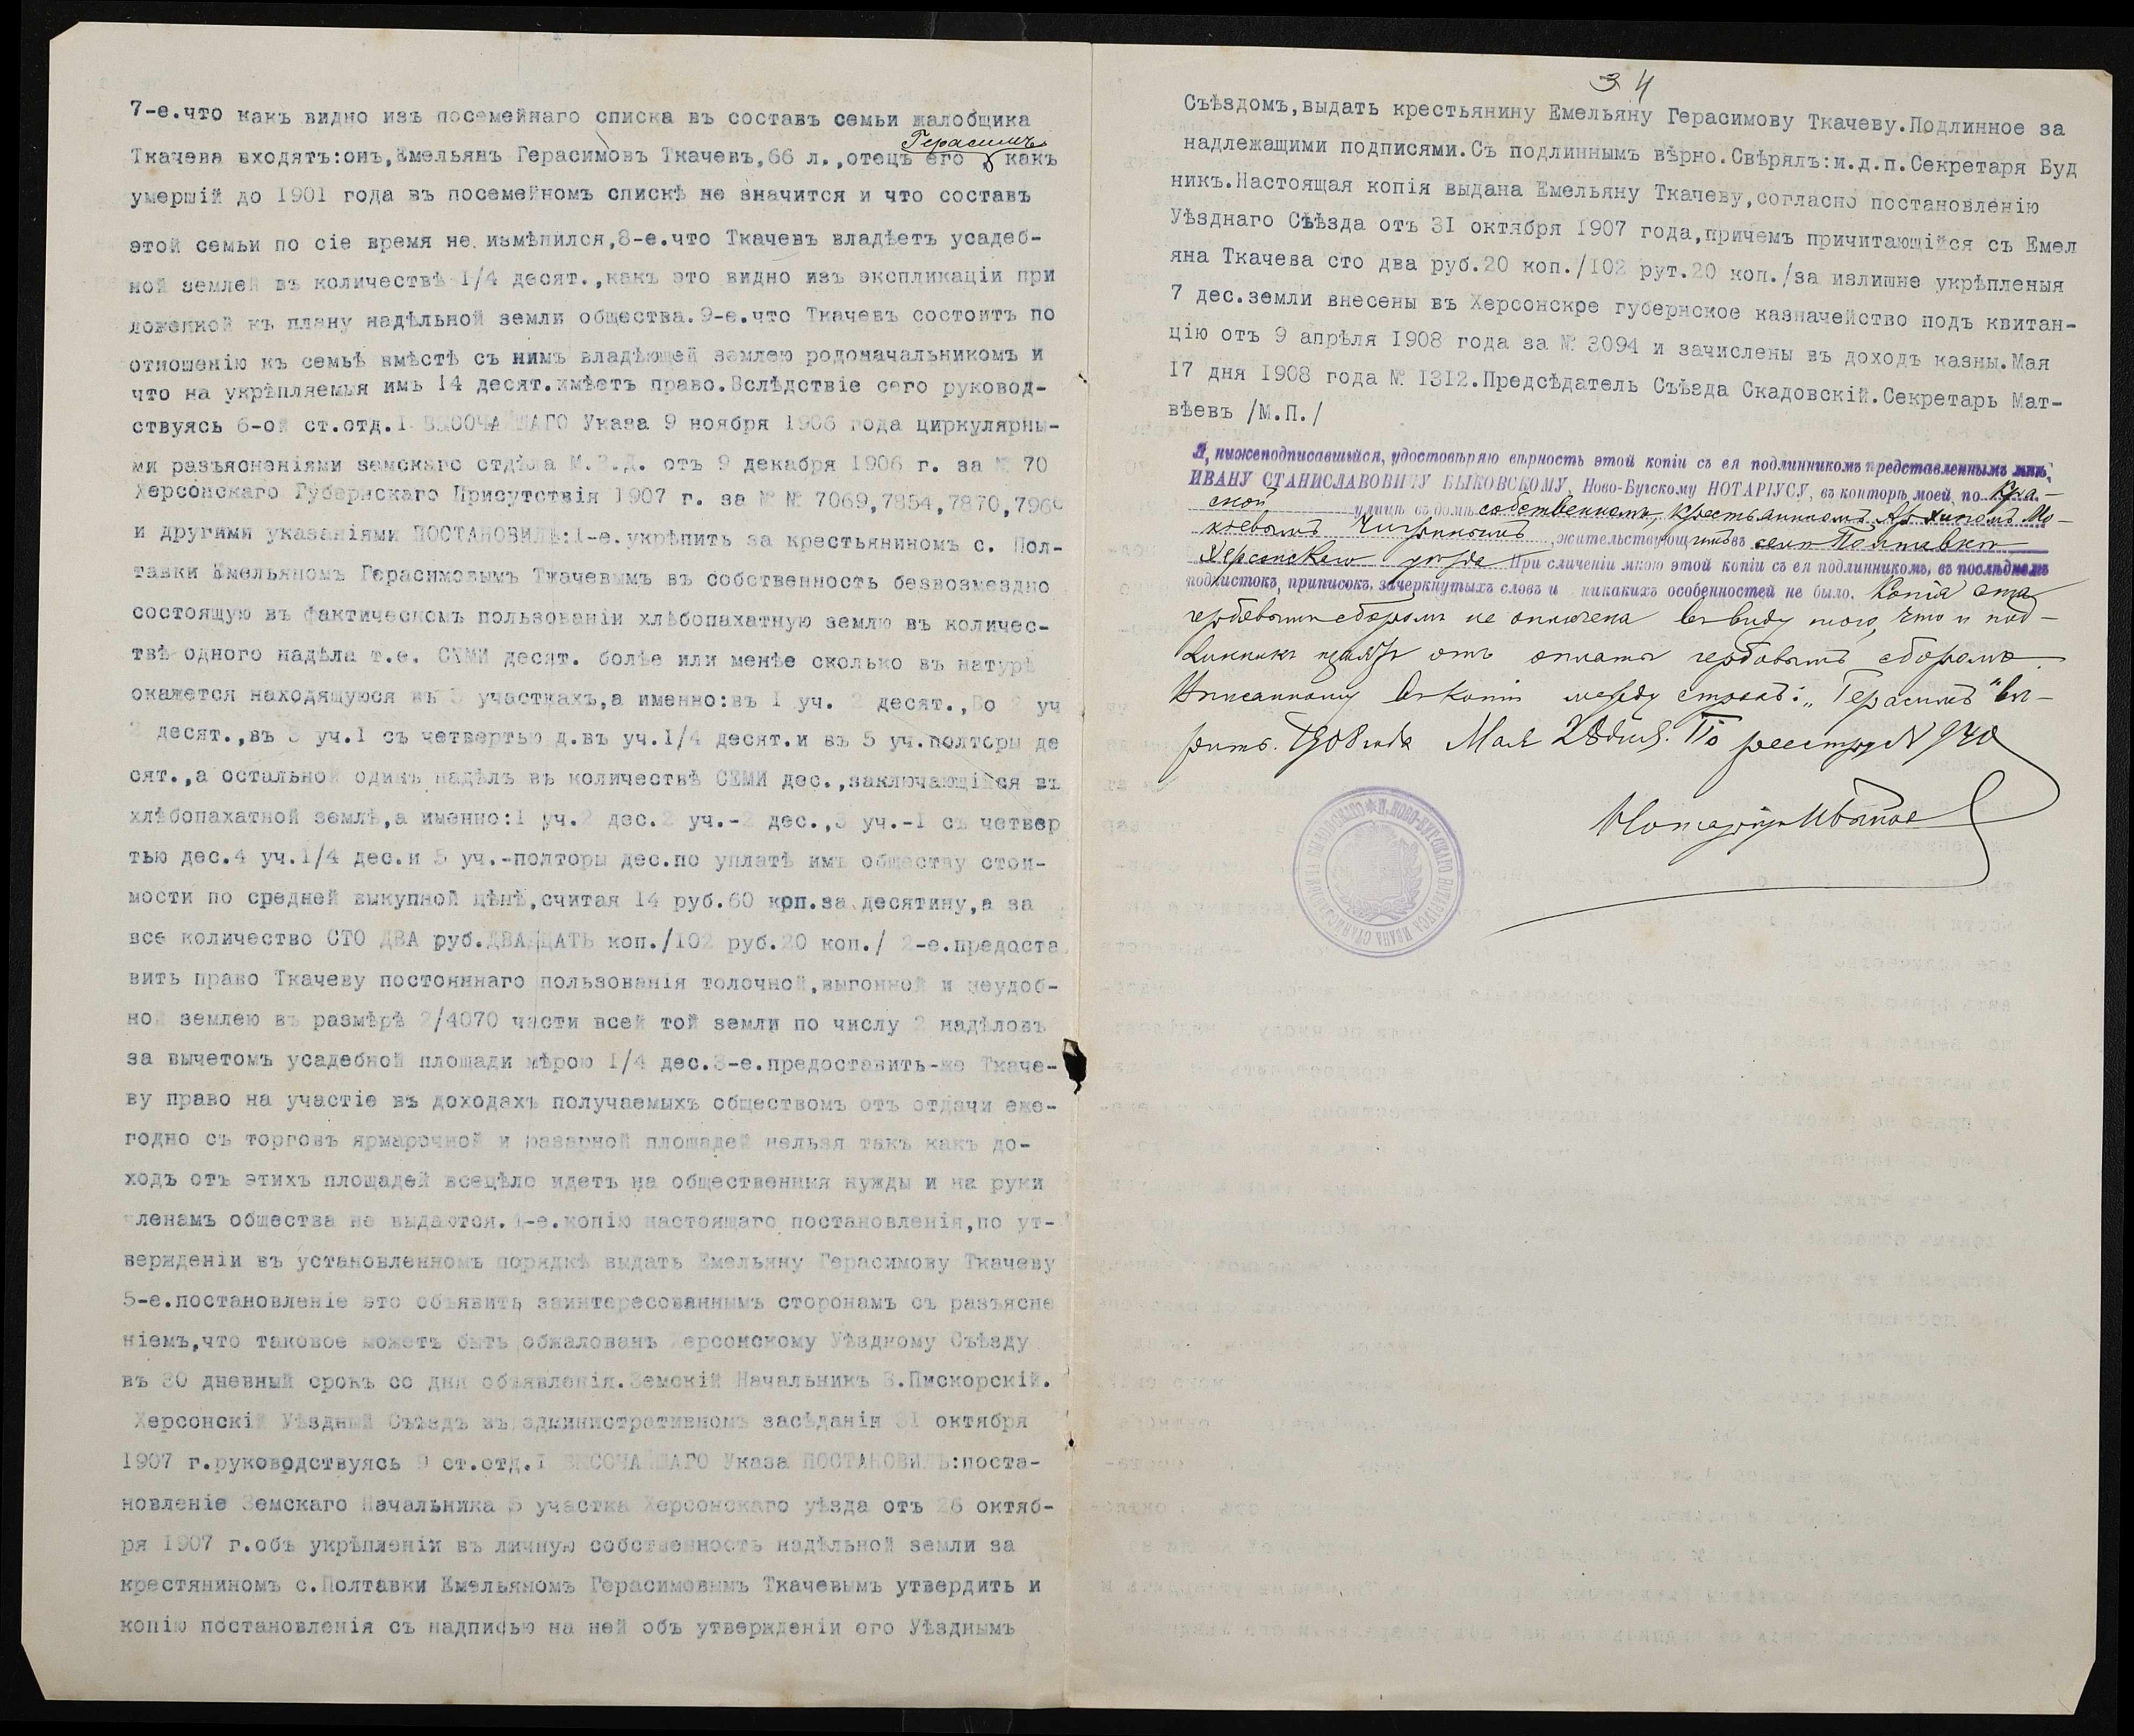 7-е.что какъ видно изъ посемейнаго списка въ составъ семьи жалобщика
Герасимъ
Ткачева входятъ:онъ,Емельянъ Герасимовъ Ткачевъ,66 л.,отецъ его какъ
умершій до 1901 года въ посемейномъ спискѣ не значится и что составъ
этой семьи по сіе время не измѣнился,8-е.что Ткачевъ владѣетъ усадеб-
ной землей въ количествѣ 1/4 десят.,какъ это видно изъ экспликаціи при
ложенной къ плану надѣльной земли общества.9-е.что Ткачевъ состоитъ по
отношенію къ семьѣ вмѣстѣ съ нимъ владѣющей землею родоначальникомъ и
что на укрѣпляемыя имъ 14 десят.имѣетъ право.Вслѣдствіе сего руковод-
ствуясь 6-ой ст.отд.I ВЫСОЧАЙШАГО Указа 9 ноября 1906 года циркулярны-
ми разъясненіями земскаго отдѣла М.В.Д. отъ 9 декабря 1906 г. за № 70
Херсонскаго Губернскаго Присутствія 1907 г. за № № 7069,7854,7870,796
и другими указаніями ПОСТАНОВИЛЪ:1-е.укрѣпить за крестьяниномъ с. Пол-
тавки Емельяномъ Герасимовымъ Ткачевымъ въ собственность безвозмездно
состоящую въ фактическомъ пользованіи хлѣбопахатную землю въ количес-
твѣ одного надѣла т.е. СЕМИ десят. болѣе или менѣе сколько въ натурѣ
окажется находящуюся въ 5 участкахъ,а именно:въ I уч. 2 десят.,Во 2 уч
2 десят.,въ 3 уч.I съ четвертью д.въ уч.1/4 десят.и въ 5 уч.полторы де
сят.,а остальной одинъ надѣлъ въ количествѣ СЕМИ дес.,заключающійся въ
хлѣбопахатной землѣ,а именно:1 уч.2 дес.2 уч.-2 дес.,3 уч.-I съ четвер
тью дес.4 уч.1/4 дес.и 5 уч.-полторы дес.по уплатѣ имъ обществу стои-
мости по средней выкупной цѣнѣ,считая 14 руб.60 крп.за десятину,а за
все количество СТО ДВА руб.ДВАДЦАТЬ коп./102 руб.20 коп./ 2-е.предоста
вить право Ткачеву постояннаго пользованія толочной,выгонной и неудоб-
ной землею въ размѣрѣ 2/4070 части всей той земли по числу 2 надѣловъ
за вычетомъ усадебной площади мѣрою 1/4 дес.3-е.предоставить-же Ткаче-
ву право на участіе въ доходахъ получаемыхъ обществомъ отъ отдачи еже-
годно съ торговъ ярмарочной и базарной площадей нельзя такъ какъ до-
ходъ отъ этихъ площадей всецѣло идетъ на общественныя нужды и на руки
членамъ общества не выдаются. -е.копію настоящаго постановленія,по ут-
вержденіи въ установленномъ порядкѣ выдать Емельяну Герасимову Ткачеву
5-е.постановленіе это объявить заинтересованнымъ сторонамъ съ разъясне
ніемъ,что таковое можетъ быть обжалованъ Херсонскому Уѣздному Съѣзду
въ 30 дневный срокъ со дня объявленія.Земскій Начальникъ В.Пискорскій.
Херсонскій Уѣздный Съѣздъ въ административномъ засѣданіи 31 октября
1907 г.руководствуясь 9 ст.отд.I ВЫСОЧАЙШАГО Указа ПОСТАНОВИЛЪ:поста-
новленіе Земскаго Начальника 5 участка Херсонскаго уѣзда отъ 26 октяб-
ря 1907 г.объ укрѣпленіи въ личную собственность надѣльной земли за
крестяниномъ с.Полтавки Емельяномъ Герасимовымъ Ткачевымъ утвердить и
копію постановленія съ надписью на ней объ утвержденіи его Уѣзднымъ
34
Съѣздомъ,выдать крестьянину Емельяну Герасимову Ткачеву.Подлинное за
надлежащими подписями.Съ подлиннымъ вѣрно.Свѣрялъ:и.д.п.Секретаря Буд
никъ.Настоящая копія выдана Емельяну Ткачеву,согласно постановленію
Уѣзднаго Съѣзда отъ 31 октября 1907 года,причемъ причитающійся съ Емел
яна Ткачева сто два руб.20 коп./102 рут.20 коп./за излишне укрѣпленыя
7 дес.земли внесены въ Херсонскре губернское казначейство подъ квитан-
цію отъ 9 апрѣля 1908 года за № 3094 и зачислены въ доходъ казны.Мая
17 дня 1908 года № 1312.Предсѣдатель Съѣзда Скадовскій.Секретарь Мат-
вѣевъ /М.П./
Я, нижеподписавшійся, удостовѣряю вѣрность этой копіи съ ея подлинникомъ представленнымъ мнѣ,
ИВАНУ СТАНИСЛАВОВИЧУ БЫКОВСКОМУ, Ново-Бугскому НОТАРІУСУ, въ конторѣ моей, по Кра-
сной улицѣ въ домѣ собственномъ, крестьяниномъ Архипомъ Мо-
кіевымъ Чигриномъ, жительствующимъ въ селѣ Полтавкѣ
Херсонскаго уѣзда При сличеніи мною этой копіи съ ея подлинникомъ, въ послѣднемъ
подчистокъ, приписокъ, зачеркнутыхъ словъ и никакихъ особенностей не было. Копія эта
гербовымъ сборомъ не оплачена въ виду того, что и под-
линникъ изъятъ отъ оплаты гербовымъ сборомъ.
Написанному въ копіи между строкъ: „Герасимъ" вѣ-
рить. 1908 года Мая 28 дня. По реестру N 940
Нотаріусъ